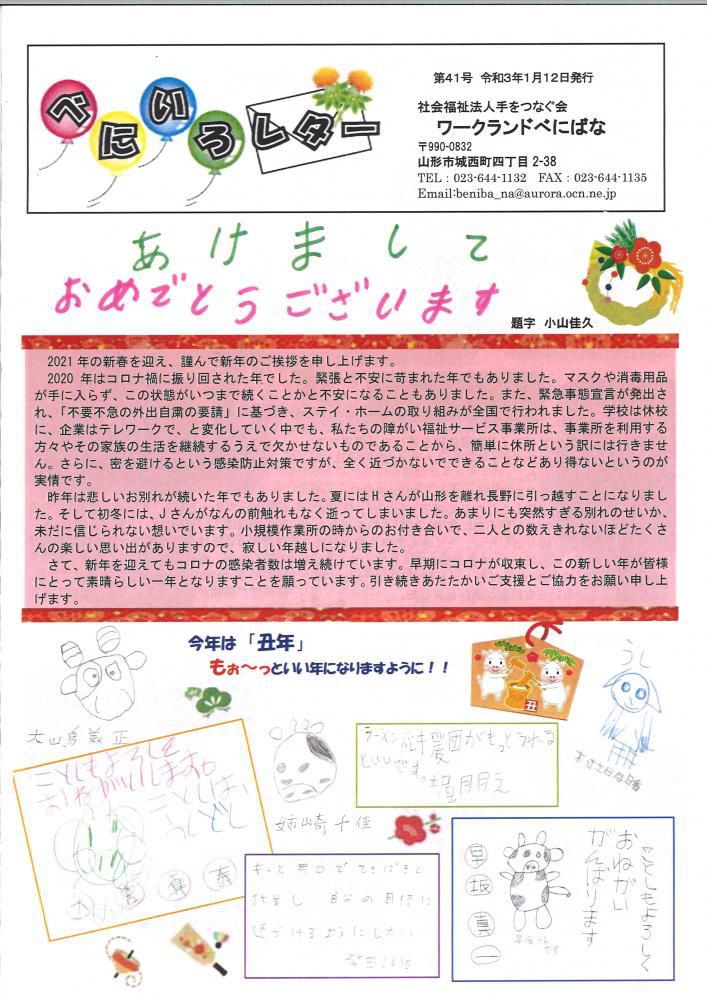 べにいろレター
第41号 令和3年1月12日発行
社会福祉法人手をつなぐ会
ワークランドべにばな
〒990-0832
山形市城西町四丁目 2-38
TEL：023-644-1132 FAX：023-644-1135
Email:beniba_na@aurora.ocn.ne.jp
あけまして
おめでとうございます
題字 小山佳久
2021 年の新春を迎え、謹んで新年のご挨拶を申し上げます。
2020 年はコロナ禍に振り回された年でした。緊張と不安に苛まれた年でもありました。マスクや消毒用品
が手に入らず、この状態がいつまで続くことかと不安になることもありました。また、緊急事態宣言が発出さ
れ、「不要不急の外出自粛の要請」に基づき、ステイ・ホームの取り組みが全国で行われました。学校は休校
に、企業はテレワークで、と変化していく中でも、私たちの障がい福祉サービス事業所は、事業所を利用する
方々やその家族の生活を継続するうえで欠かせないものであることから、簡単に休所という訳には行きませ
ん。さらに、密を避けるという感染防止対策ですが、全く近づかないでできることなどあり得ないというのが
実情です。
昨年は悲しいお別れが続いた年でもありました。夏にはHさんが山形を離れ長野に引っ越すことになりまし
た。そして初冬には、Jさんがなんの前触れもなく逝ってしまいました。あまりにも突然すぎる別れのせいか、
未だに信じられない想いでいます。小規模作業所の時からのお付き合いで、二人との数えきれないほどたくさ
んの楽しい思い出がありますので、寂しい年越しになりました。
さて、新年を迎えてもコロナの感染者数は増え続けています。早期にコロナが収束し、この新しい年が皆様
にとって素晴らしい一年となりますことを願っています。引き続きあたたかいご支援とご協力をお願い申し上
げます。
今年は「丑年」
もぉ～っといい年になりますように！！
丑
うし
大山烏義正
ことしもよろしく
おねがいします。
ことしは
ラーメン応援団がもっとうれると
いいです。
姉崎千佳
もっと無口でてきぱきと
仕事し、自分の目標に
近づけるようにしたい
ことしもよろしく
おねがい
がんばります
早坂真一